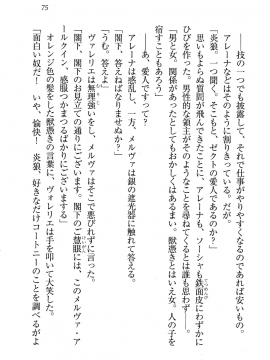 75
――技の一つでも披露して、それで仕事がやりやすくなるのであれば安いもの。
アレーナなどはそのように割りきっている。が。
「炎狼。一つ聞く。そこは、ゼクトの愛人ですか？」
思いもよらぬ質問が飛んできたことに、アレーナも、ソーシャも鉄面皮にわずかに
ひびを作った。男性的な領主がそのようなことを尋ねるとは誰も思わず――
「男と女。関係があったとしてもおかしくはない。獣憑きとはいえ女。人の子を
宿すこともあろう」
――あ、愛人ですって？
アレーナは惑乱し、一方、メルヴァは銀の遮光器に触れて答える。
「閣下、答えねばなりませぬか？」
「うむ。答えよ」
ヴァレリエは無理強いをし、メルヴァはそこで悪びれずに言った。
「閣下、閣下のお見立ての通りにございます。閣下のご慧眼には、このメルヴァ・ア
ールクイン、感服つかまつるばかりにございます」
オレンジ色の髪をした獣憑きの言葉に、ヴォレリエは手を叩いて大笑した。
「面白い奴だ！　いや、愉快！　炎狼、好きなだけコートニーのことを調べるがよ